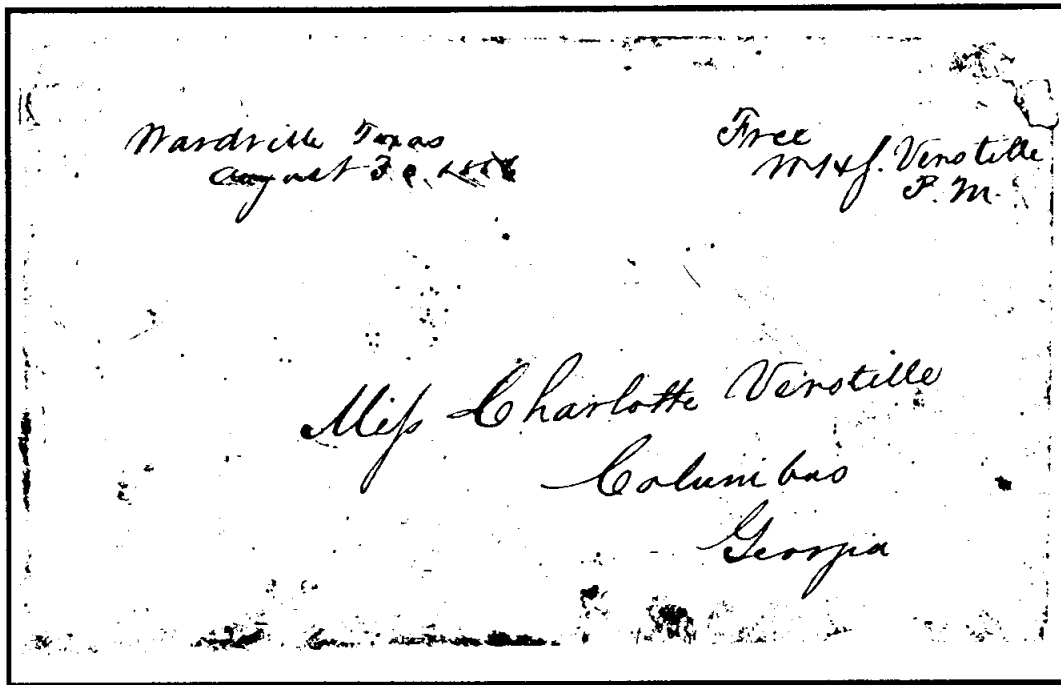 Wardville Texas
August
Free
Verstille
P.M.
Miss Charlotte Verstille
Columbus
Georgia